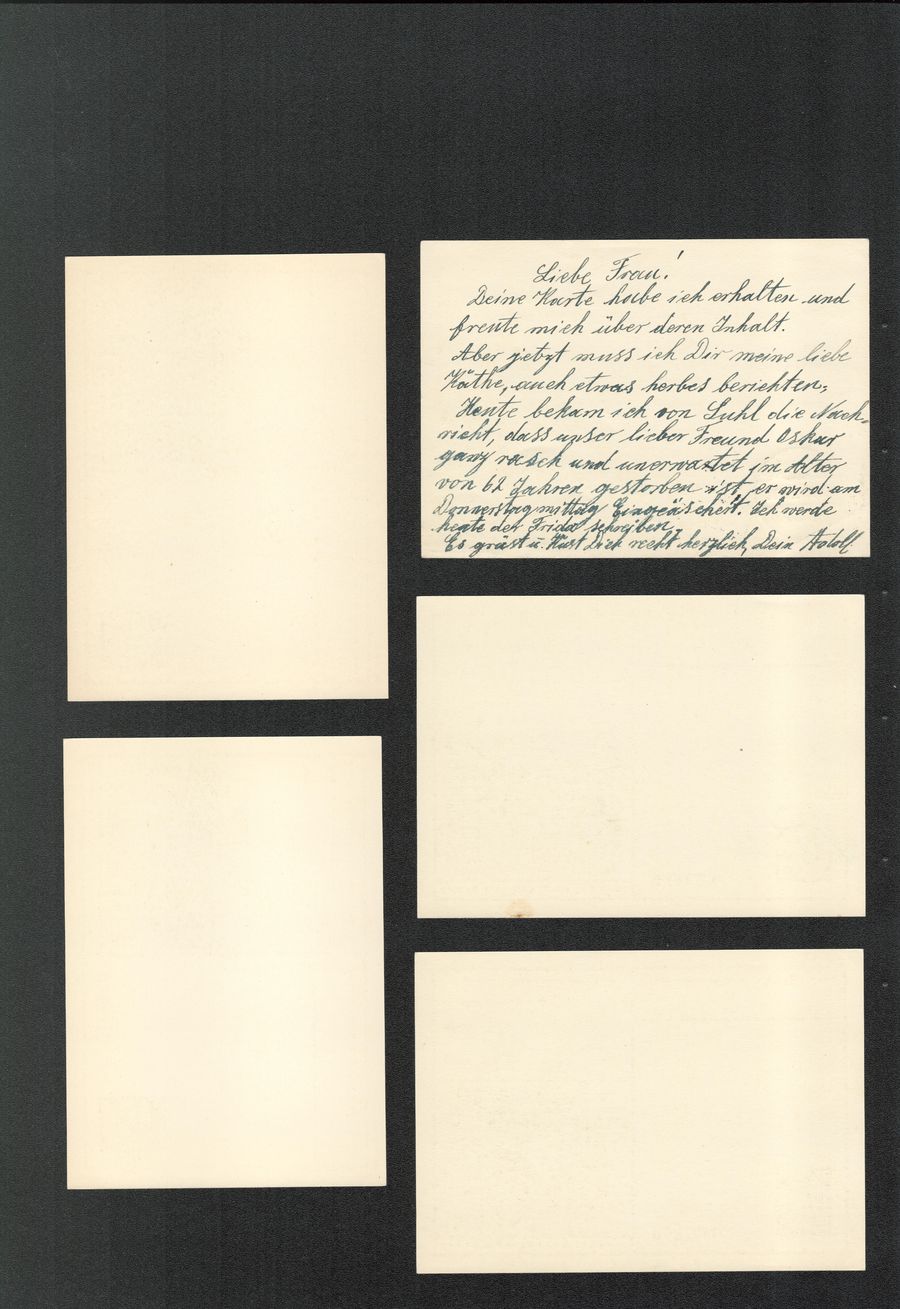 Liebe Frau!
Deine Karte habe ich erhalten und
freute mich über deren Inhalt.
Aber jetzt muss ich Dir meine liebe
Käthe, auch etwas herbes berichten,
Heute bekam ich von Suhl die Nach-
richt, dass unser lieber Freund Oskar
ganz rasch und unerwartet im Alter
von 62 Jahren gestorben ist, er wird am
Donnerstagmittag Eingeäschert. Ich werde
heute der Frida schreiben.
Es grüst u. Küst Dich recht herzlich, Dein Adolf